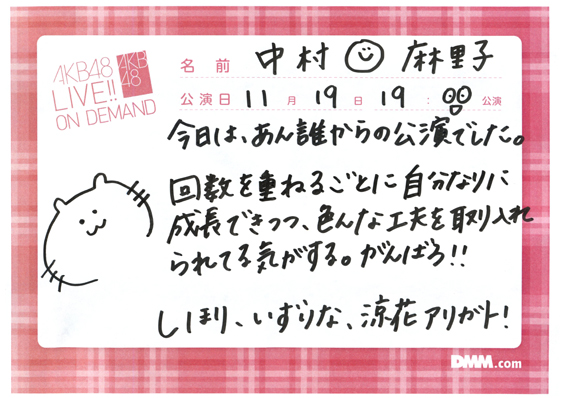 AKB48
LIVE!!
ON DEMAND
AKB
48
名前 中村 麻里子
公演日 11月19日 19:00公演
今日は、あん誰からの公演でした。
回数を重ねるごとに自分なりに
成長できつつ、色んな工夫を取り入れ
られてる気がする。がんばろ!!
しほり、いずりな、涼花アリガト!
DMM.com